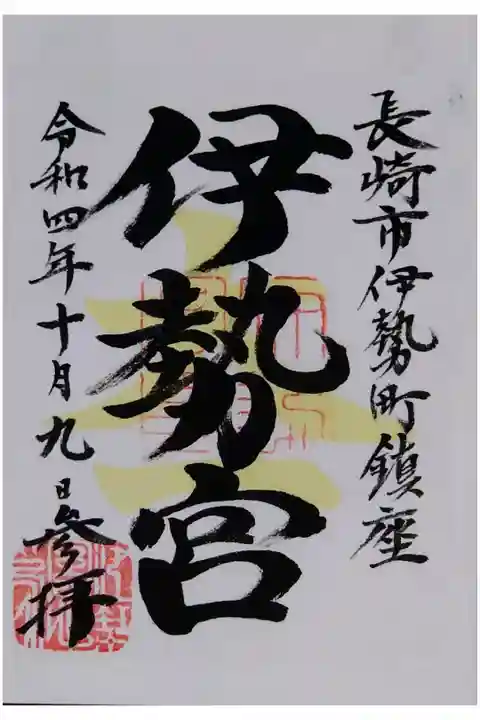 長崎市伊勢町鎮座
伊勢宮
令和四年十月九日参拝